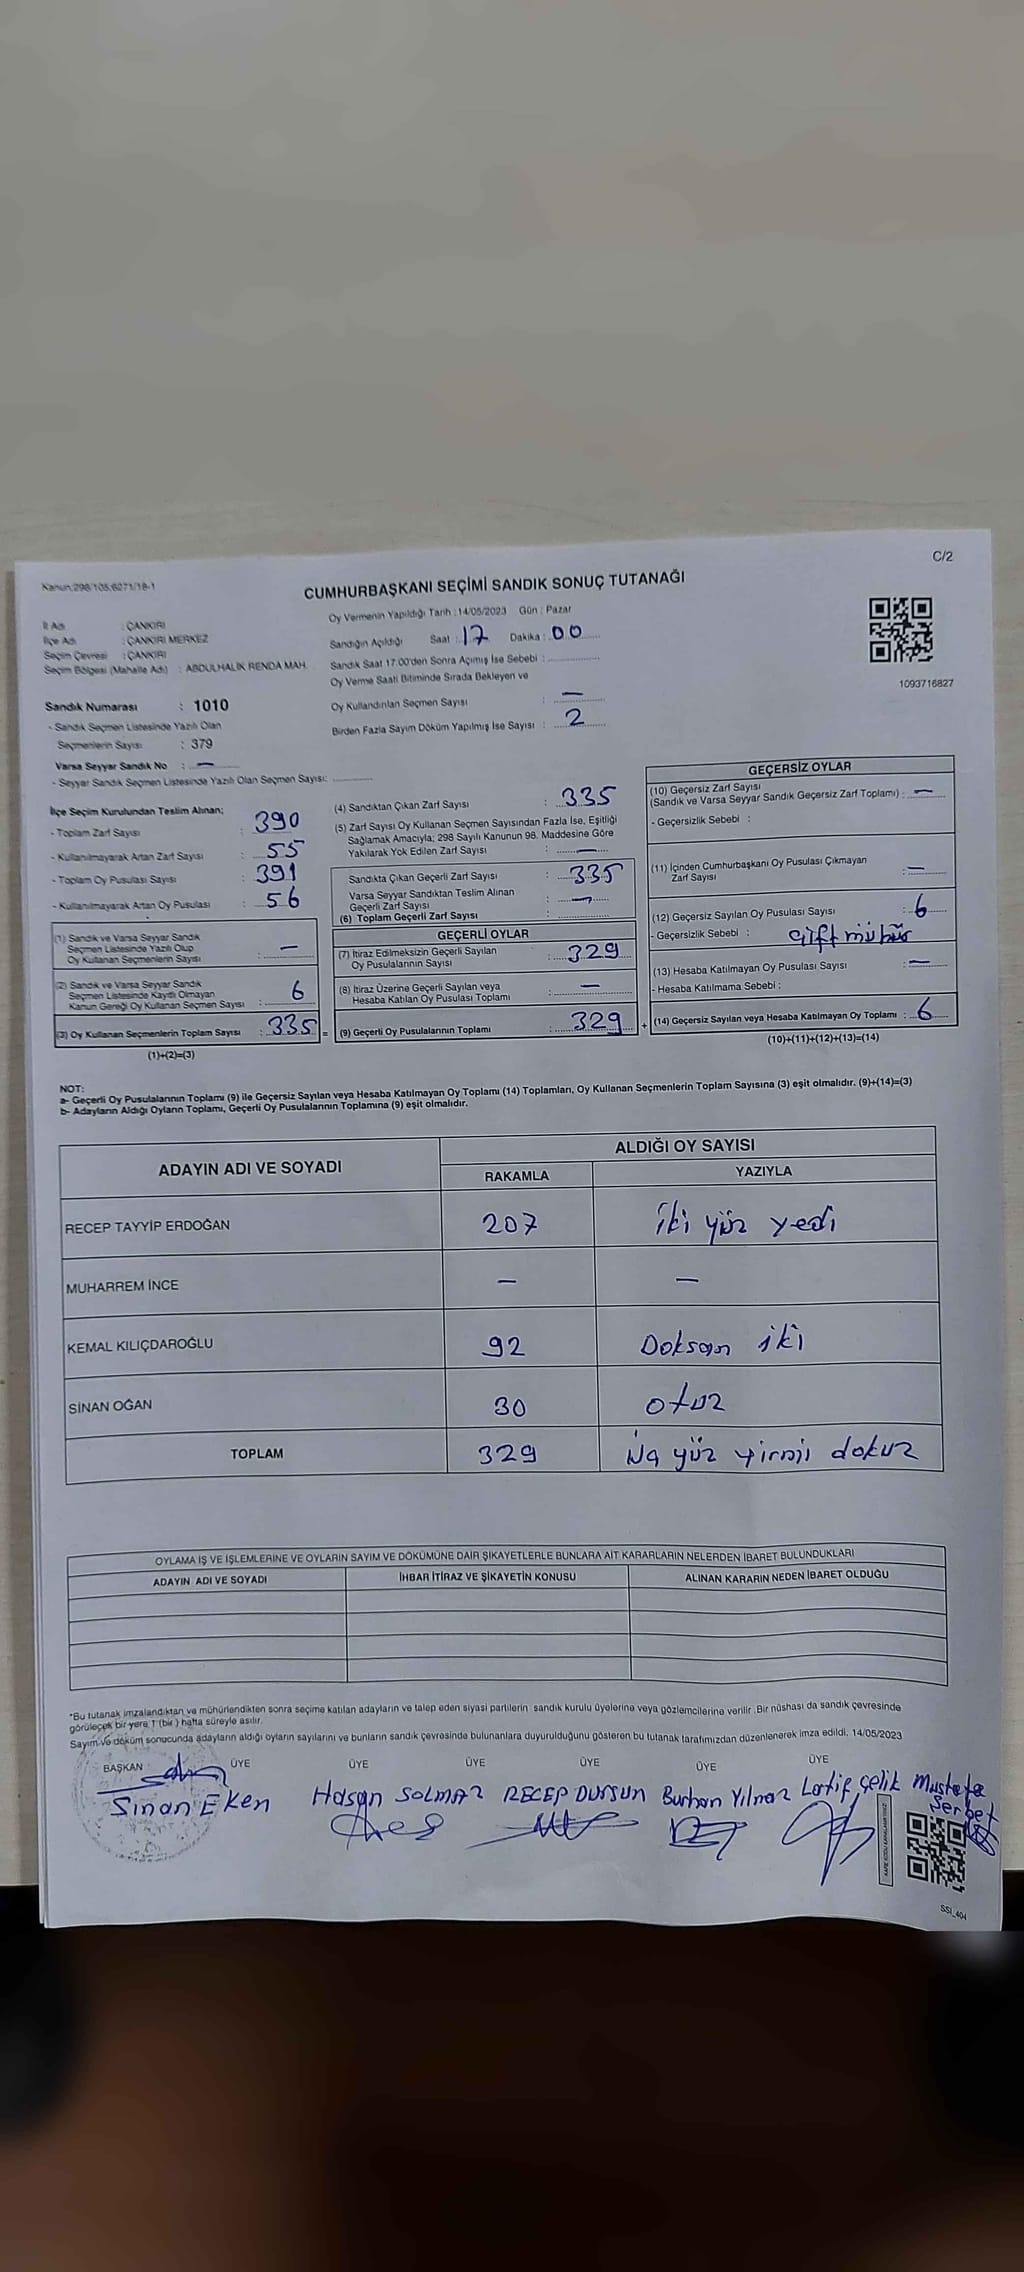 C/2
Kanun:298/105;6271/18-1
CUMHURBAŞKANI SEÇİMİ SANDIK SONUÇ TUTANAĞI
İl Adı : ÇANKIRI
İlçe Adı : ÇANKIRI MERKEZ
Seçim Çevresi : ÇANKIRI
Seçim Bölgesi (Mahalle Adı) : ABDULHALİK RENDA MAH.
Sandık Numarası : 1010
- Sandık Seçmen Listesinde Yazılı Olan
Seçmenlerin Sayısı : 379
Varsa Seyyar Sandık No : —
- Seyyar Sandık Seçmen Listesinde Yazılı Olan Seçmen Sayısı: ..............
Oy Vermenin Yapıldığı Tarih : 14/05/2023 Gün : Pazar
Sandığın Açıldığı Saat : 17 Dakika : 00
Sandık Saat 17.00'den Sonra Açımış İse Sebebi : ..............
Oy Verme Saati Bitiminde Sırada Bekleyen ve
Oy Kullandırılan Seçmen Sayısı : —
Birden Fazla Sayım Döküm Yapılmış İse Sayısı : 2
1093716827
İlçe Seçim Kurulundan Teslim Alınan;
- Toplam Zarf Sayısı : 390
- Kullanılmayarak Artan Zarf Sayısı : 55
- Toplam Oy Pusulası Sayısı : 391
- Kullanılmayarak Artan Oy Pusulası : 56
(1) Sandık ve Varsa Seyyar Sandık
Seçmen Listesinde Yazılı Olup
Oy Kullanan Seçmenlerin Sayısı : —
(2) Sandık ve Varsa Seyyar Sandık
Seçmen Listesinde Kayıtlı Olmayan
Kanun Gereği Oy Kullanan Seçmen Sayısı : 6
(3) Oy Kullanan Seçmenlerin Toplam Sayısı : 335 =
(1)+(2)=(3)
(4) Sandıktan Çıkan Zarf Sayısı : 335
(5) Zarf Sayısı Oy Kullanan Seçmen Sayısından Fazla İse, Eşitliği
Sağlamak Amacıyla; 298 Sayılı Kanunun 98. Maddesine Göre
Yakılarak Yok Edilen Zarf Sayısı : —
Sandıkta Çıkan Geçerli Zarf Sayısı : 335
Varsa Seyyar Sandıktan Teslim Alınan
Geçerli Zarf Sayısı : —
(6) Toplam Geçerli Zarf Sayısı : ..............
GEÇERLİ OYLAR
(7) İtiraz Edilmeksizin Geçerli Sayılan
Oy Pusulalarının Sayısı : 329
(8) İtiraz Üzerine Geçerli Sayılan veya
Hesaba Katılan Oy Pusulası Toplamı : —
(9) Geçerli Oy Pusulalarının Toplamı : 329 +
GEÇERSİZ OYLAR
(10) Geçersiz Zarf Sayısı
(Sandık ve Varsa Seyyar Sandık Geçersiz Zarf Toplamı) : —
- Geçersizlik Sebebi :
(11) İçinden Cumhurbaşkanı Oy Pusulası Çıkmayan
Zarf Sayısı : —
(12) Geçersiz Sayılan Oy Pusulası Sayısı : 6
- Geçersizlik Sebebi : Çift mühür
(13) Hesaba Katılmayan Oy Pusulası Sayısı : —
- Hesaba Katılmama Sebebi :
(14) Geçersiz Sayılan veya Hesaba Katılmayan Oy Toplamı : 6
(10)+(11)+(12)+(13)=(14)
NOT:
a- Geçerli Oy Pusulalarının Toplamı (9) ile Geçersiz Sayılan veya Hesaba Katılmayan Oy Toplamı (14) Toplamları, Oy Kullanan Seçmenlerin Toplam Sayısına (3) eşit olmalıdır. (9)+(14)=(3)
b- Adayların Aldığı Oyların Toplamı, Geçerli Oy Pusulalarının Toplamına (9) eşit olmalıdır.
ADAYIN ADI VE SOYADI ALDIĞI OY SAYISI
RAKAMLA YAZIYLA
RECEP TAYYİP ERDOĞAN 207 iki yüz yedi
MUHARREM İNCE — —
KEMAL KILIÇDAROĞLU 92 Doksan iki
SİNAN OĞAN 30 otuz
TOPLAM 329 yüz yirmi dokuz
OYLAMA İŞ VE İŞLEMLERİNE VE OYLARIN SAYIM VE DÖKÜMÜNE DAİR ŞİKAYETLERLE BUNLARA AİT KARARLARIN NELERDEN İBARET BULUNDUKLARI
ADAYIN ADI VE SOYADI İHBAR İTİRAZ VE ŞİKAYETİN KONUSU ALINAN KARARIN NEDEN İBARET OLDUĞU
*Bu tutanak imzalandıktan ve mühürlendikten sonra seçime katılan adayların ve talep eden siyasi partilerin sandık kurulu üyelerine veya gözlemcilerine verilir. Bir nüshası da sandık çevresinde
görülecek bir yere 1 (bir ) hafta süreyle asılır.
Sayım ve döküm sonucunda adayların aldığı oyların sayılarını ve bunların sandık çevresinde bulunanlara duyurulduğunu gösteren bu tutanak tarafımızdan düzenlenerek imza edildi. 14/05/2023
BAŞKAN ÜYE ÜYE ÜYE ÜYE ÜYE ÜYE
Sinan Eken Hasan SOLMAZ RECEP DURSUN Burhan Yılmaz Latif Çelik Mustafa
Serbet
SSI_404